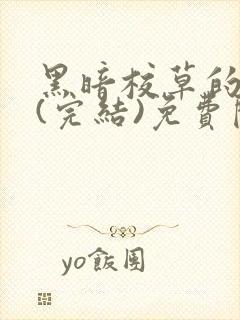 黑暗校草的
(完結)免費
yo飯團